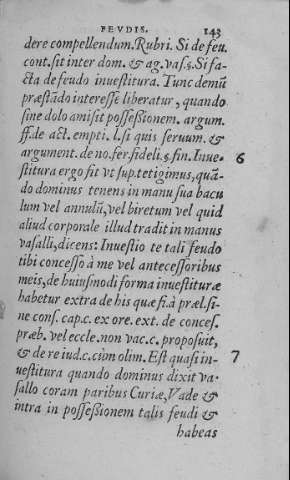 FEVDIS. 143
dere compellendum. Rubri. Si de feu.
cont. sit inter dom. & ag. vas. §. Si fa-
cta de feudo inuestitura. Tunc demũ
præstãdo interesse liberatur, quando
sine dolo amisit possessionem. argum.
ff. de act. empti. l. si quis seruum. &
argument. de no. fer. fideli. §. fin. Inue- 6
stitura ergo fit vt sup. tetigimus, quã-
do dominus tenens in manu sua bacu
lum vel annulũ, vel biretum vel quid
aliud corporale illud tradit in manus
vasalli, dicens: Inuestio te tali feudo
tibi concesso à me vel antecessoribus
meis, de huiusmodi forma inuestituræ
habetur extra de his quæ fi. à præl. si-
ne cons. cap. c. ex ore. ext. de conces.
præb. vel eccle. non vac. c. proposuit,
& de re iud. c. cùm olim. Est quasi in- 7
uestitura quando dominus dixit va-
sallo coram paribus Curiæ, Vade &
intra in possessionem talis feudi &
habeas